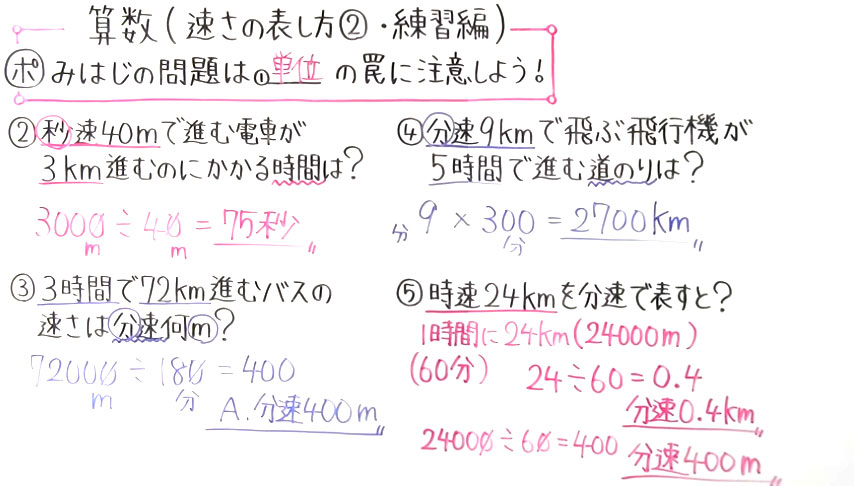 算数(速さの表し方②・練習編)
ポ みはじの問題は①単位の罠に注意しよう!
②秒速40mで進む電車が
3km進むのにかかる時間は?
3000÷40=75秒
m m
③3時間で72km進むバスの
速さは分速何m?
72000÷180=400
m 分 A.分速400m
④分速9kmで飛ぶ飛行機が
5時間で進む道のりは?
分9×300=2700km
分
⑤時速24kmを分速で表すと?
1時間に24km(24000m)
(60分) 24÷60=0.4
分速0.4km
24000÷60=400 分速400m